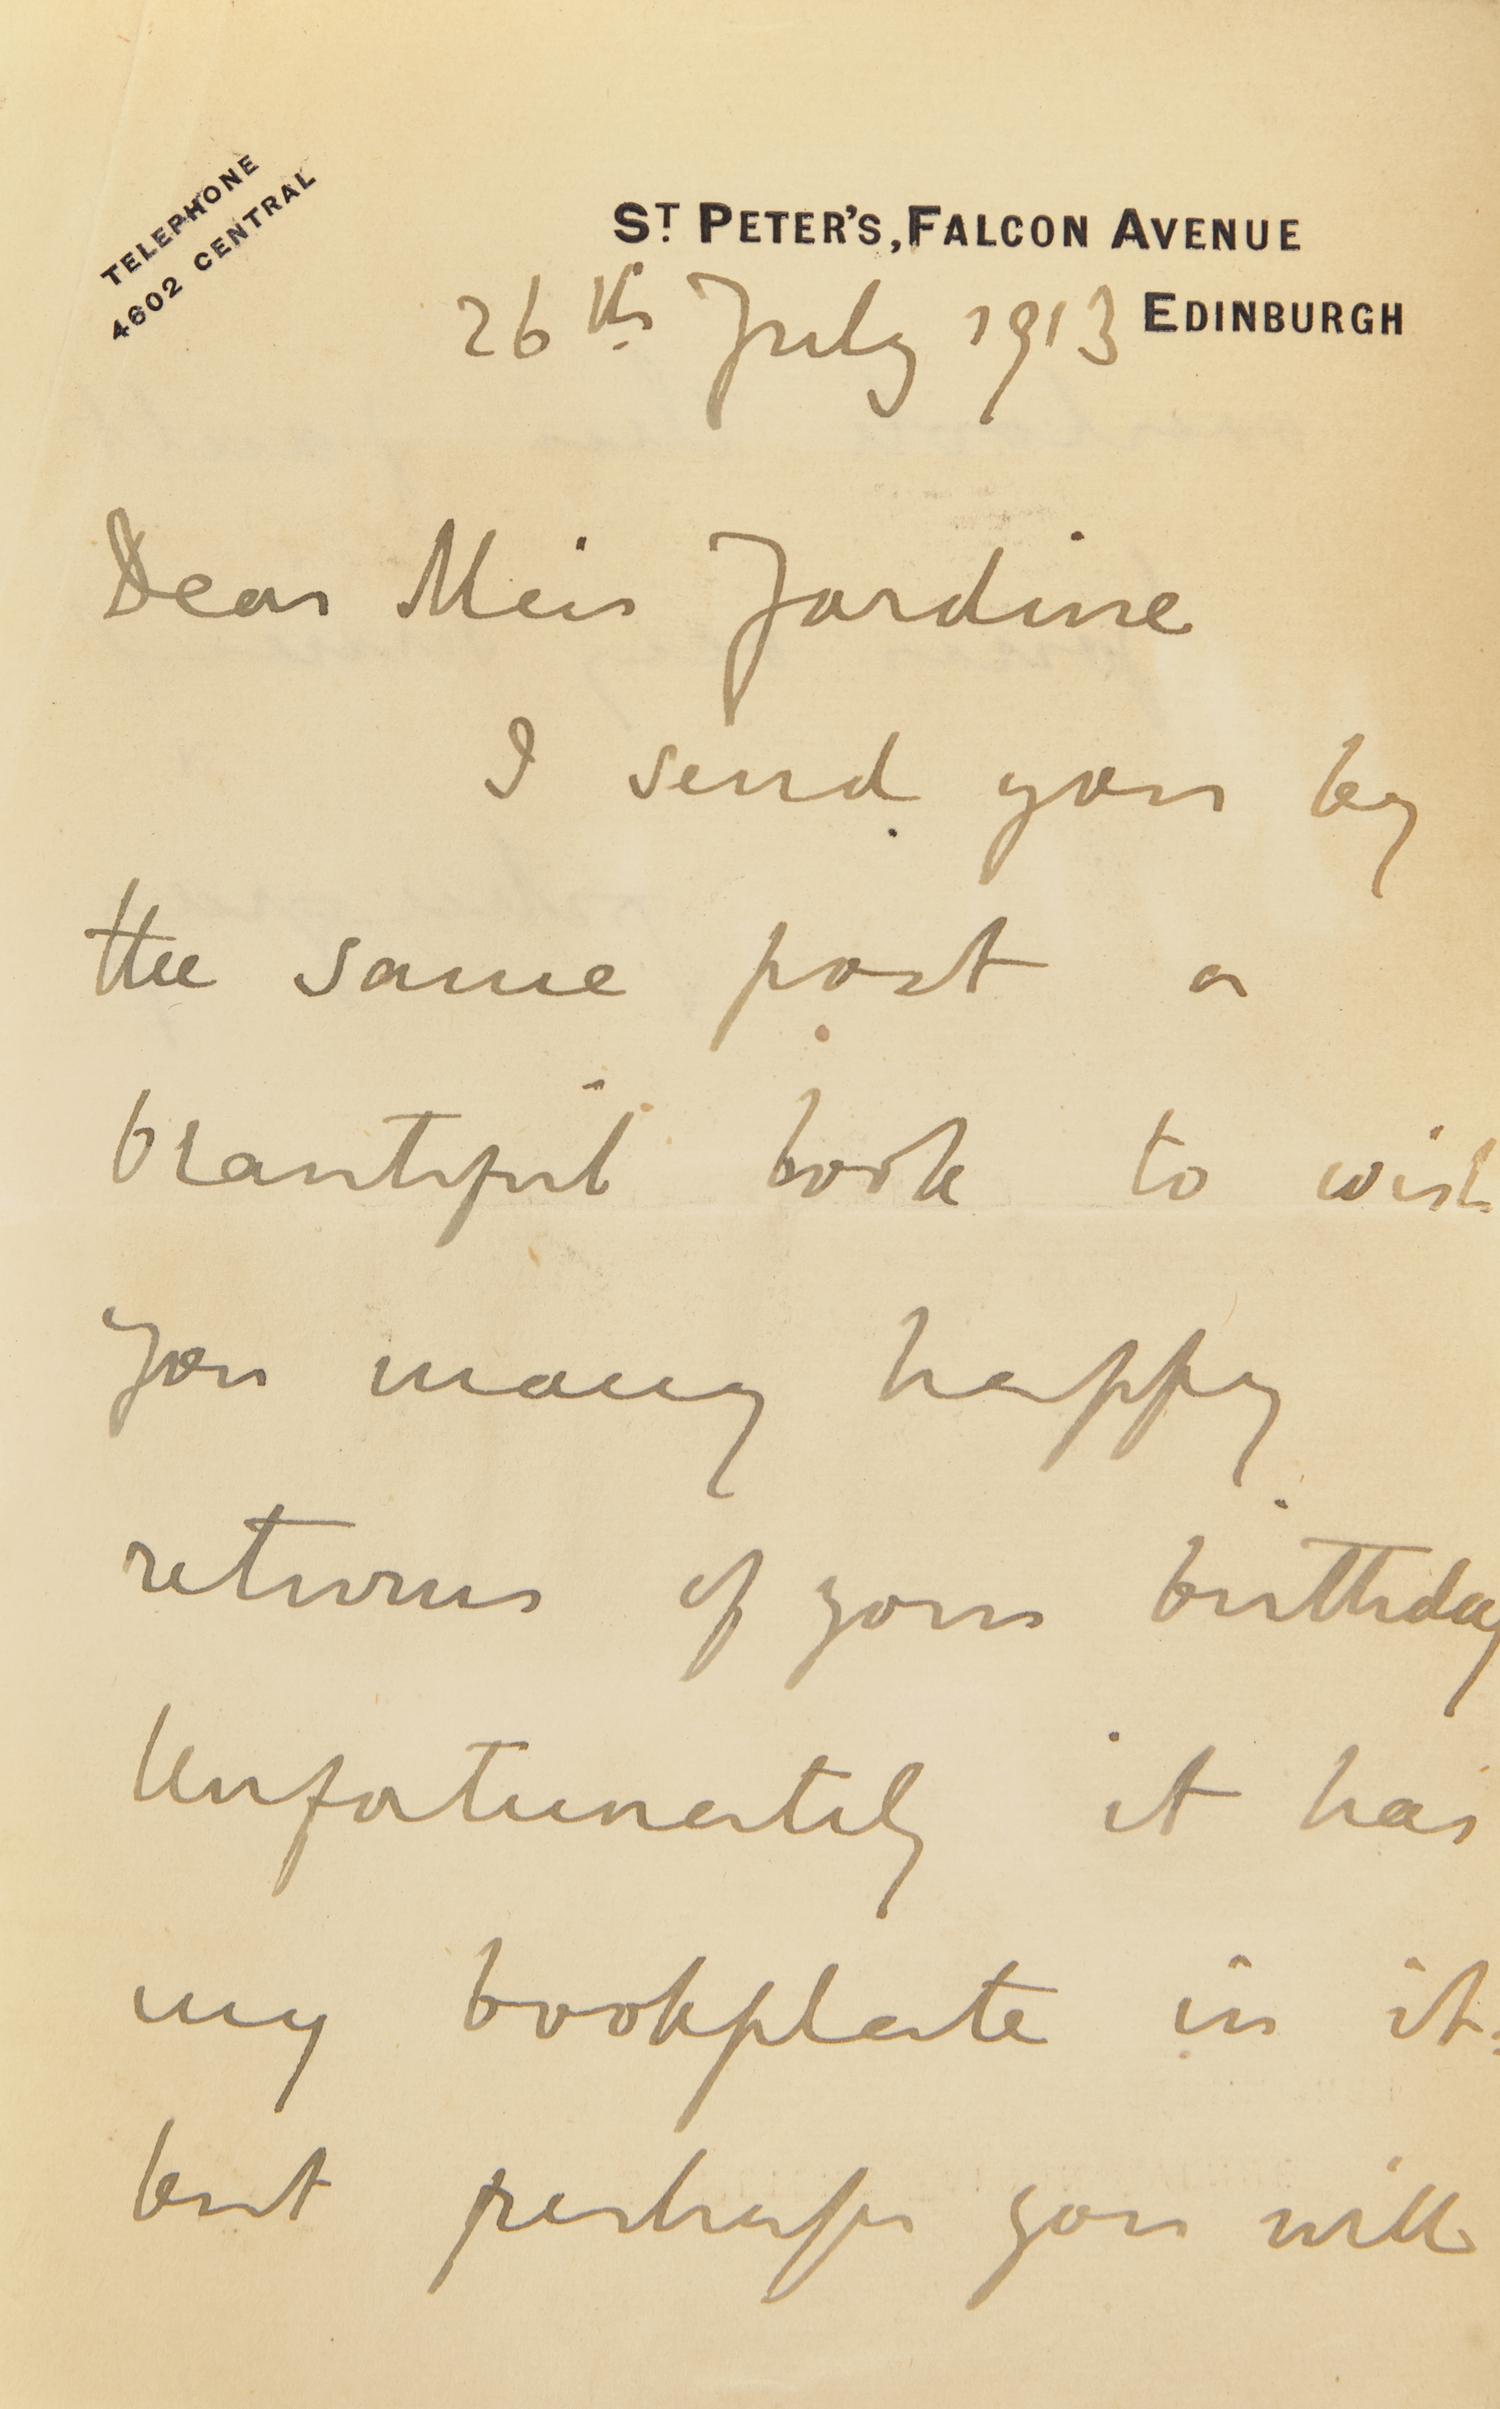 TELEPHONE
4602 CENTRAL
ST PETER'S, FALCON AVENUE
EDINBURGH
26th July 1913
Dear Miss Jardine
I send you by
the same post a
beautiful book to wish
you many happy
returns of your birthday
Unfortunately it has
my bookplate in it:
but perhaps you will